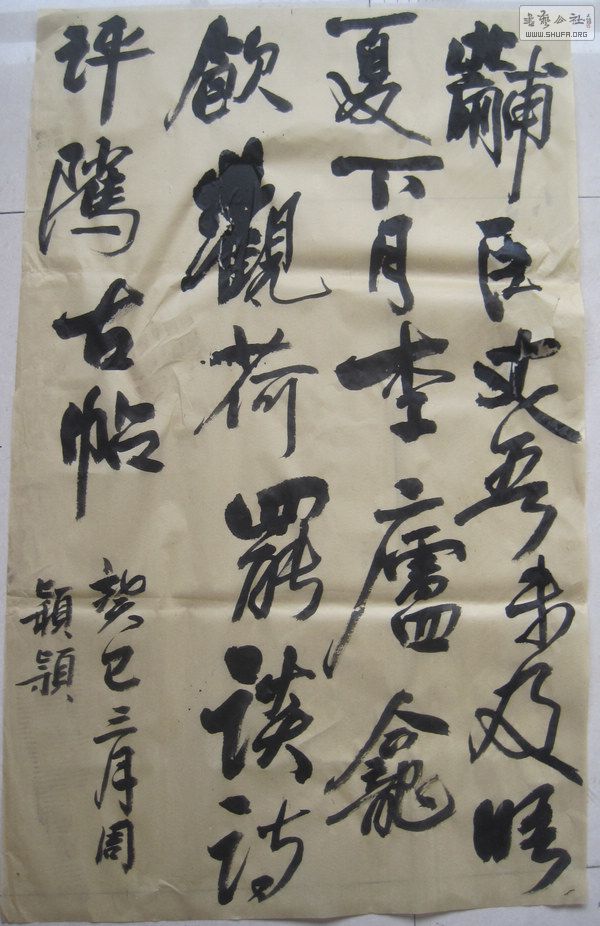 黼臣丈吾未及晤
夏下月李廬龕
飲觀荷罷談詩
評隲古帖
癸巳三月周
穎穎
書藝公社
WWW.SHUFA.ORG